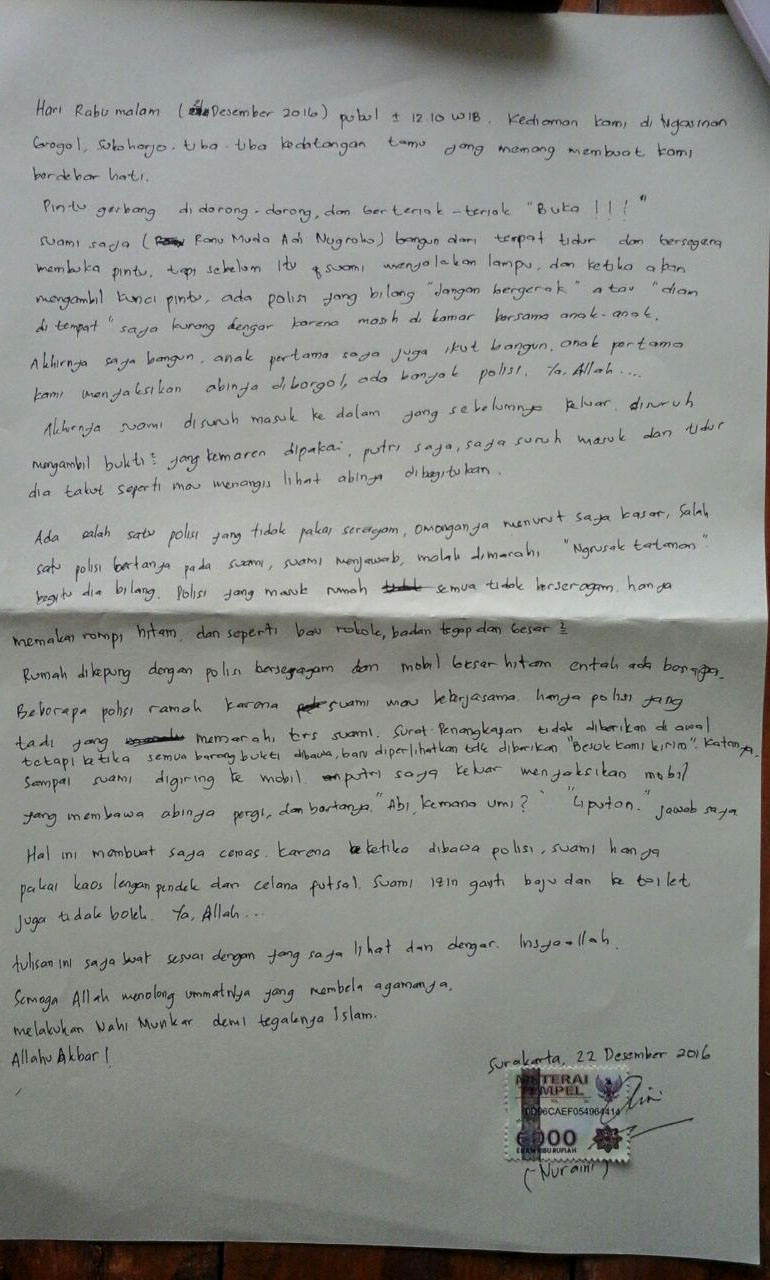 Hari Rabu malam ( Desember 2016) pukul ± 12.10 WIB. Kediaman kami di Ngasinan
Grogol, Sukoharjo. tiba-tiba kedatangan tamu yang memang membuat kami
berdebar hati.
Pintu gerbang di dorong-dorong, dan berteriak-teriak "Buka !!!"
suami saya ( Ranu Muda Adi Nugroho) bangun dari tempat tidur dan bersegera
membuka pintu, tapi sebelum itu suami menyalakan lampu, dan ketika akan
mengambil kunci pintu, ada polisi yang bilang "Jangan bergerak" atau "diam
di tempat" saya kurang dengar karena masih di kamar bersama anak-anak.
Akhirnya saya bangun, anak pertama saya juga ikut bangun. anak pertama
kami menyaksikan abinya diborgol, ada banyak polisi. Ya, Allah ....
Akhirnya suami disuruh masuk ke dalam yang sebelumnya keluar. disuruh
mengambil bukti² yang kemaren dipakai, putri saya, saya suruh masuk dan tidur
dia takut seperti mau menangis lihat abinya dibegitukan.
Ada salah satu polisi yang tidak pakai seragam, omonganya menurut saya kasar, salah
satu polisi bertanya pada suami, suami menjawab, malah dimarahi "Ngrusak tatanan".
begitu dia bilang. Polisi yang masuk rumah semua tidak berseragam, hanya
memakai rompi hitam, dan seperti bau rokok, badan tegap dan besar²
Rumah dikepung dengan polisi berseragam dan mobil besar hitam entah ada berapa.
Beberapa polisi ramah karena suami mau bekerjasama. hanya polisi yang
tadi yang memarahi trs suami. Surat Penangkapan tidak diberikan di awal
tetapi ketika semua barang bukti dibawa, baru diperlihatkan tdk diberikan "Besok kami kirim". katanya.
Sampai suami digiring ke mobil. putri saya keluar menyaksikan mobil
yang membawa abinya pergi, dan bertanya. "Abi, kemana umi?" "Liputan." jawab saya
Hal ini membuat saya cemas. karena ketika dibawa polisi, suami hanya
pakai kaos lengan pendek dan celana futsal. Suami izin ganti baju dan ke toilet
juga tidak boleh. Ya, Allah ...
tulisan ini saya buat sesuai dengan yang saya lihat dan dengar. Insya allah.
Semoga Allah menolong ummatNya yang membela agamanya,
melakukan Nahi Munkar demi tegaknya Islam.
Allahu Akbar!
Surakarta, 22 Desember 2016
METERAI
TEMPEL
6000
ENAM RIBU RUPIAH
(Nuraini)